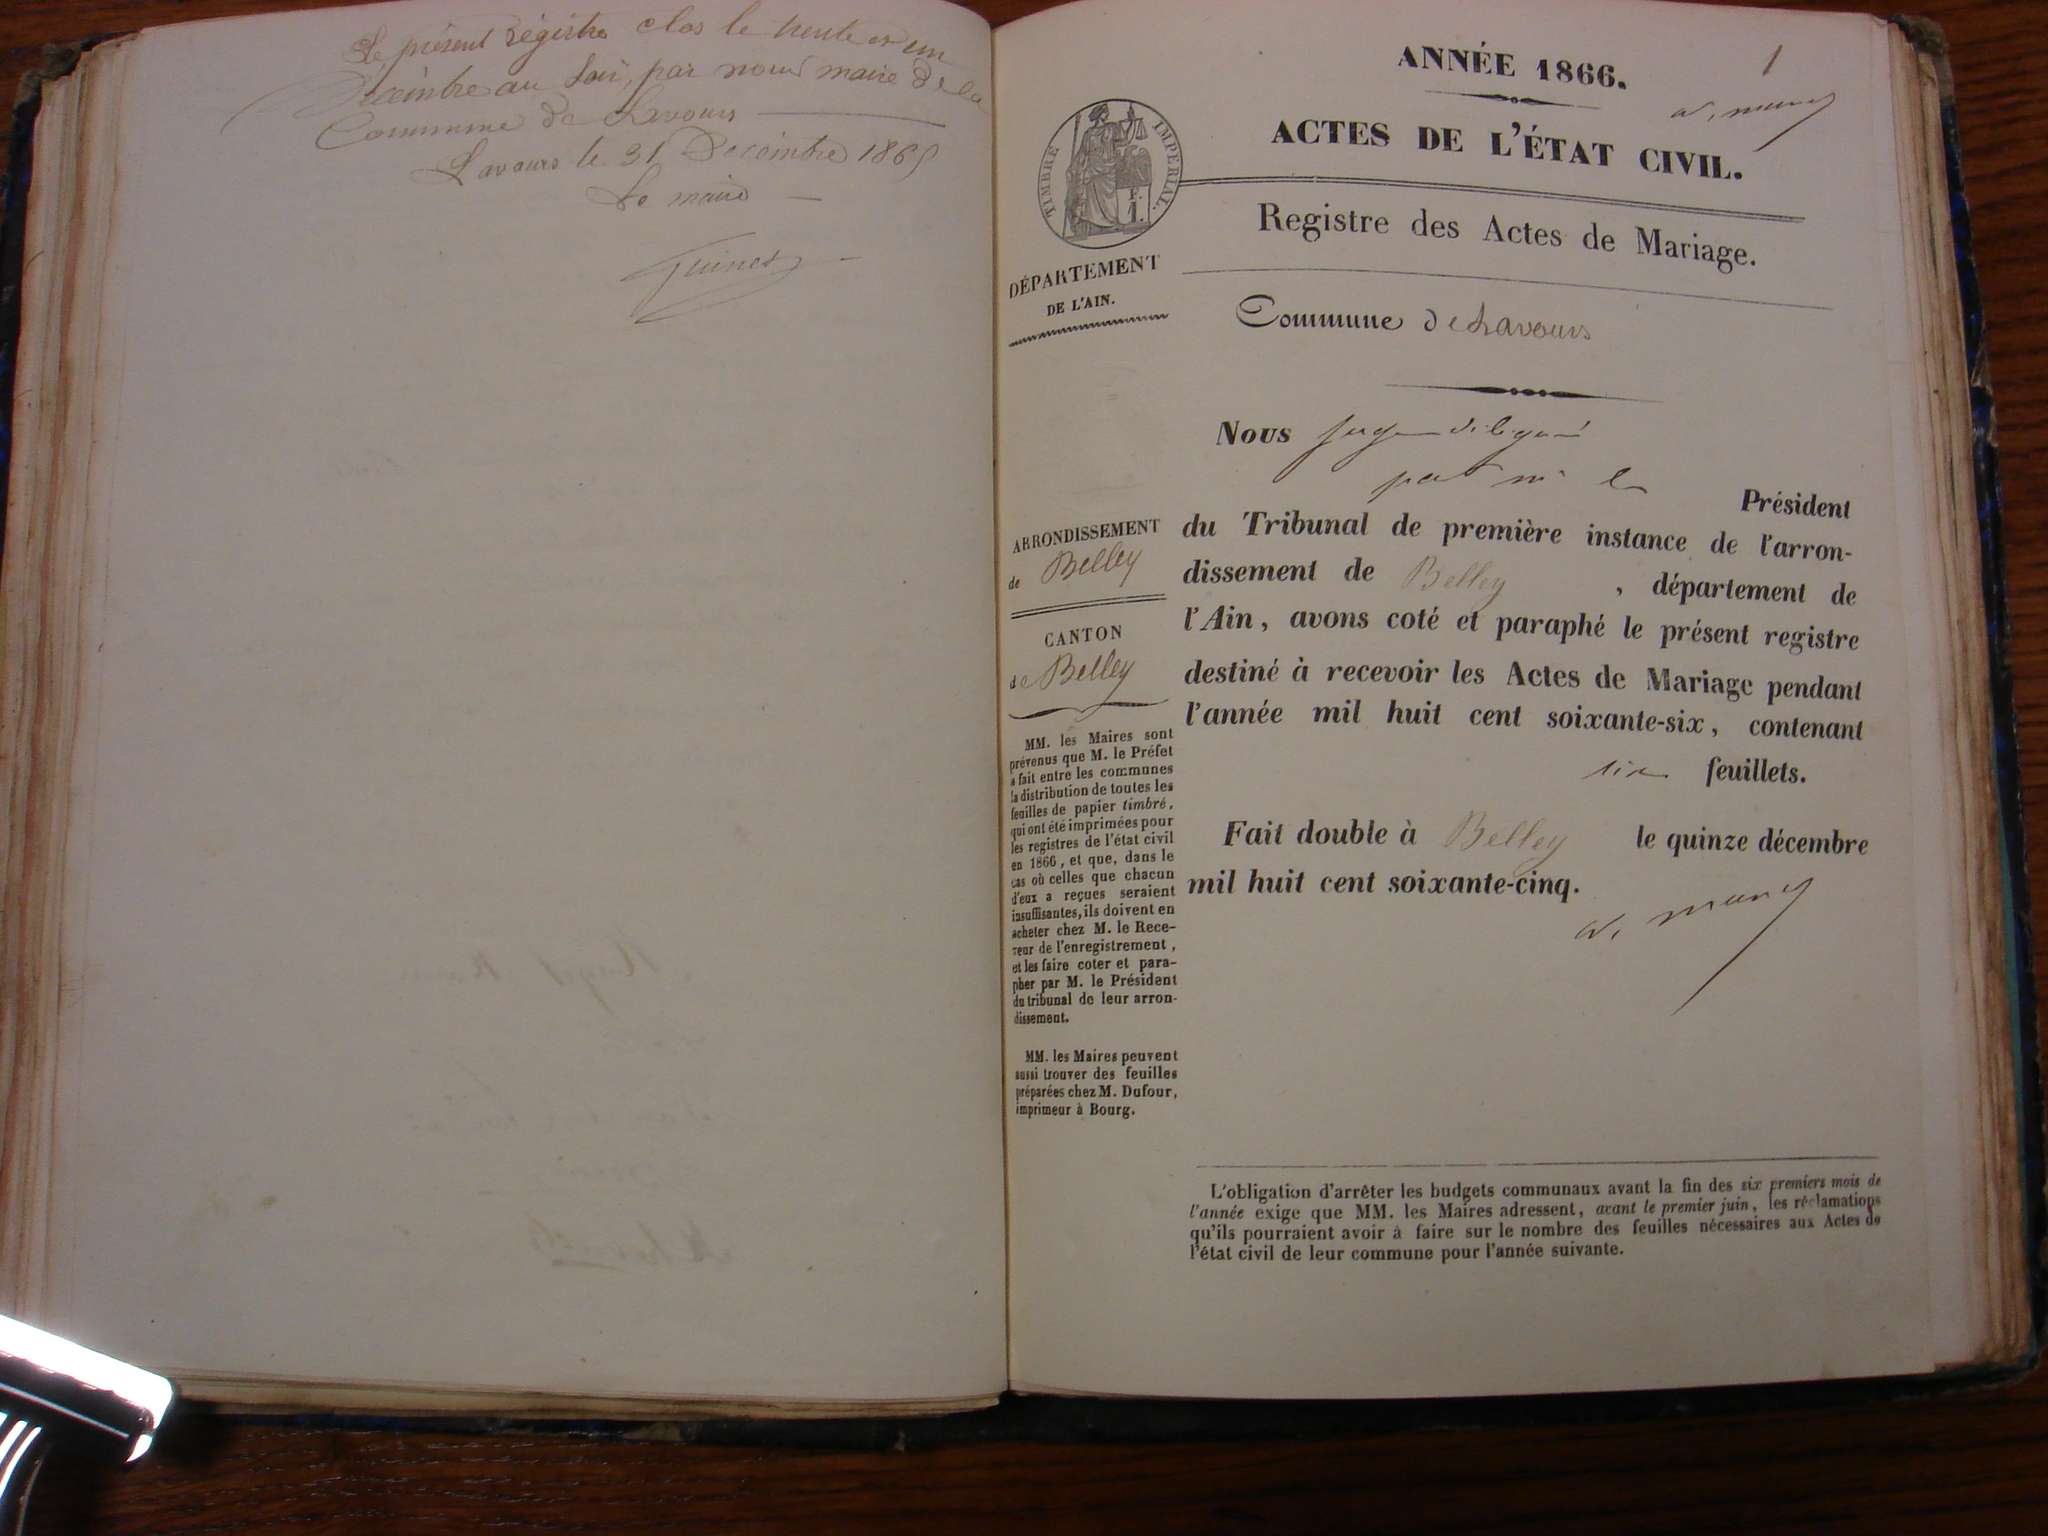 Le présent régistre clos le trente et un
Décembre au soir, par nous maire de la
Commune de Lavours
Lavours le 31 Décembre 1865
Le maire
ANNÉE 1866.
1
ACTES DE L'ÉTAT CIVIL.
TIMBRE IMPÉRIAL.
F.
1.
Registre des Actes de Mariage.
DÉPARTEMENT
DE L'AIN.
Commune de Lavours
Nous juge délégué
par Mr le
Président
du Tribunal de première instance de l'arron-
dissement de Belley, département de
l'Ain, avons coté et paraphé le présent registre
destiné à recevoir les Actes de Mariage pendant
l'année mil huit cent soixante-six, contenant
six feuillets.
Fait double à Belley le quinze décembre
mil huit cent soixante-cinq.
ARRONDISSEMENT
de Belley
CANTON
de Belley
MM. les Maires sont
prévenus que M. le Préfet
a fait entre les communes
la distribution de toutes les
feuilles de papier timbré,
qui ont été imprimées pour
les registres de l'état civil
en 1866, et que, dans le
cas où celles que chacun
d'eux a reçues seraient
insuffisantes, ils doivent en
acheter chez M. le Rece-
veur de l'enregistrement,
et les faire coter et para-
pher par M. le Président
du tribunal de leur arron-
dissement.
MM. les Maires peuvent
aussi trouver des feuilles
préparées chez M. Dufour,
imprimeur à Bourg.
L'obligation d'arrêter les budgets communaux avant la fin des six premiers mois de
l'année exige que MM. les Maires adressent, avant le premier juin, les réclamations
qu'ils pourraient avoir à faire sur le nombre des feuilles nécessaires aux Actes de
l'état civil de leur commune pour l'année suivante.